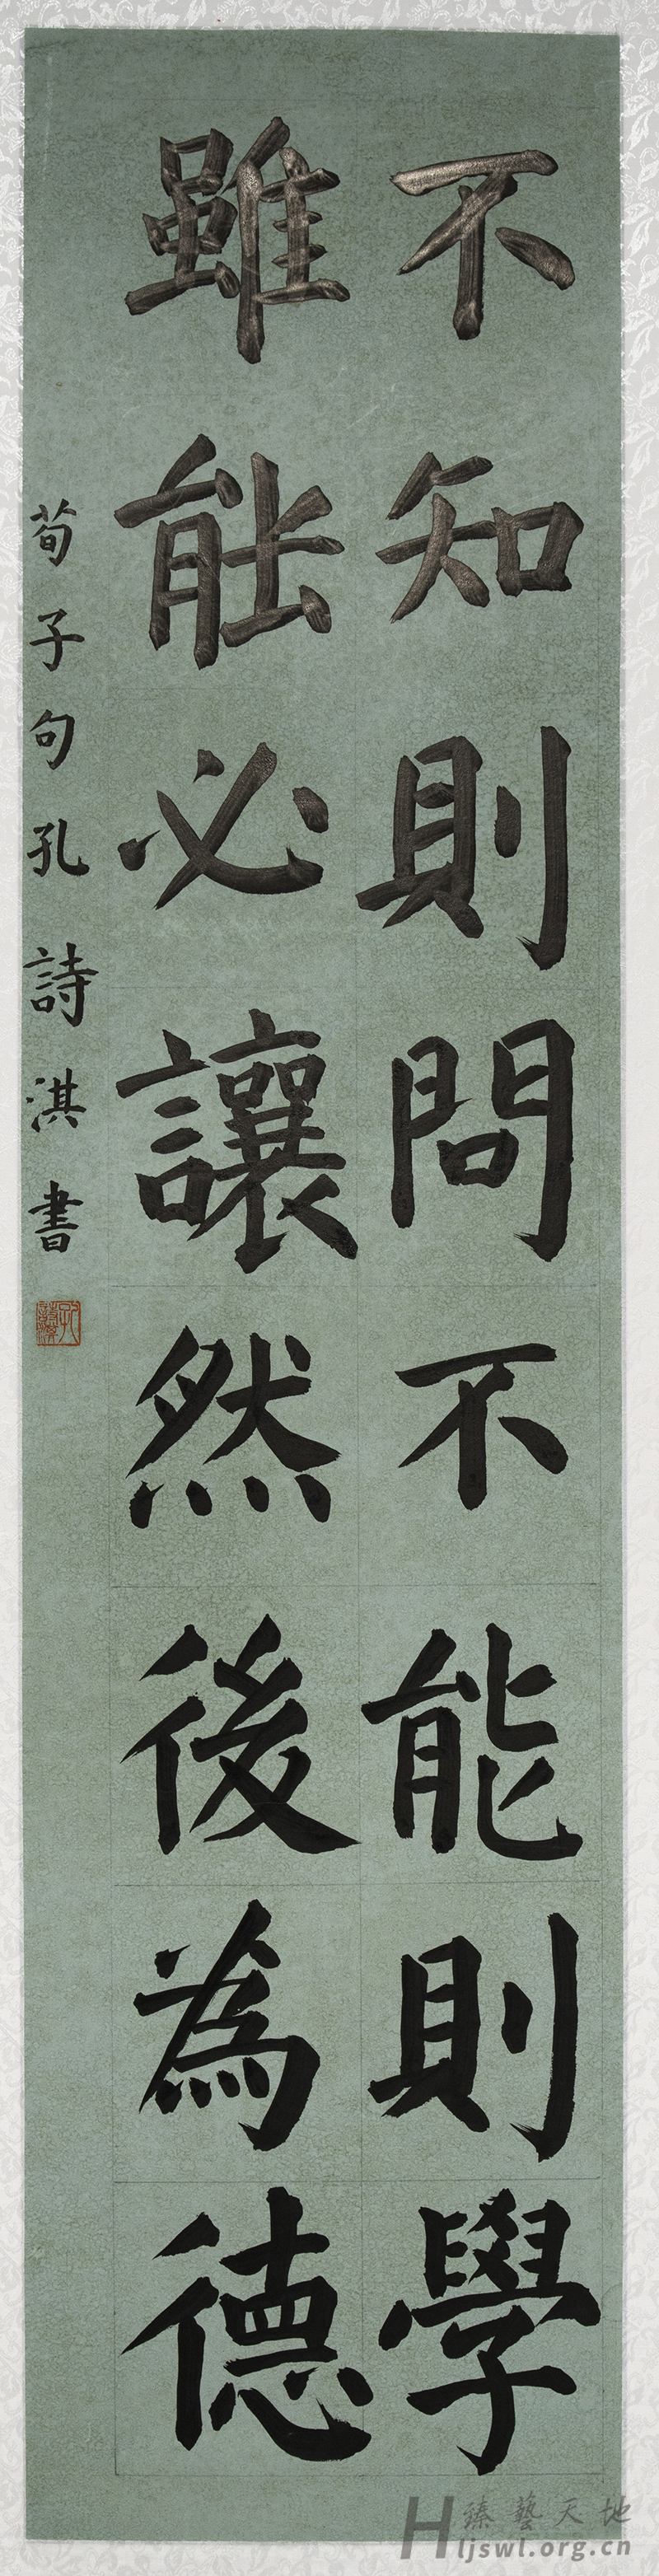 不知則問不能則學
雖能必讓然後為德
荀子句孔詩淇書
臻藝天地
Hljswl.org.cn